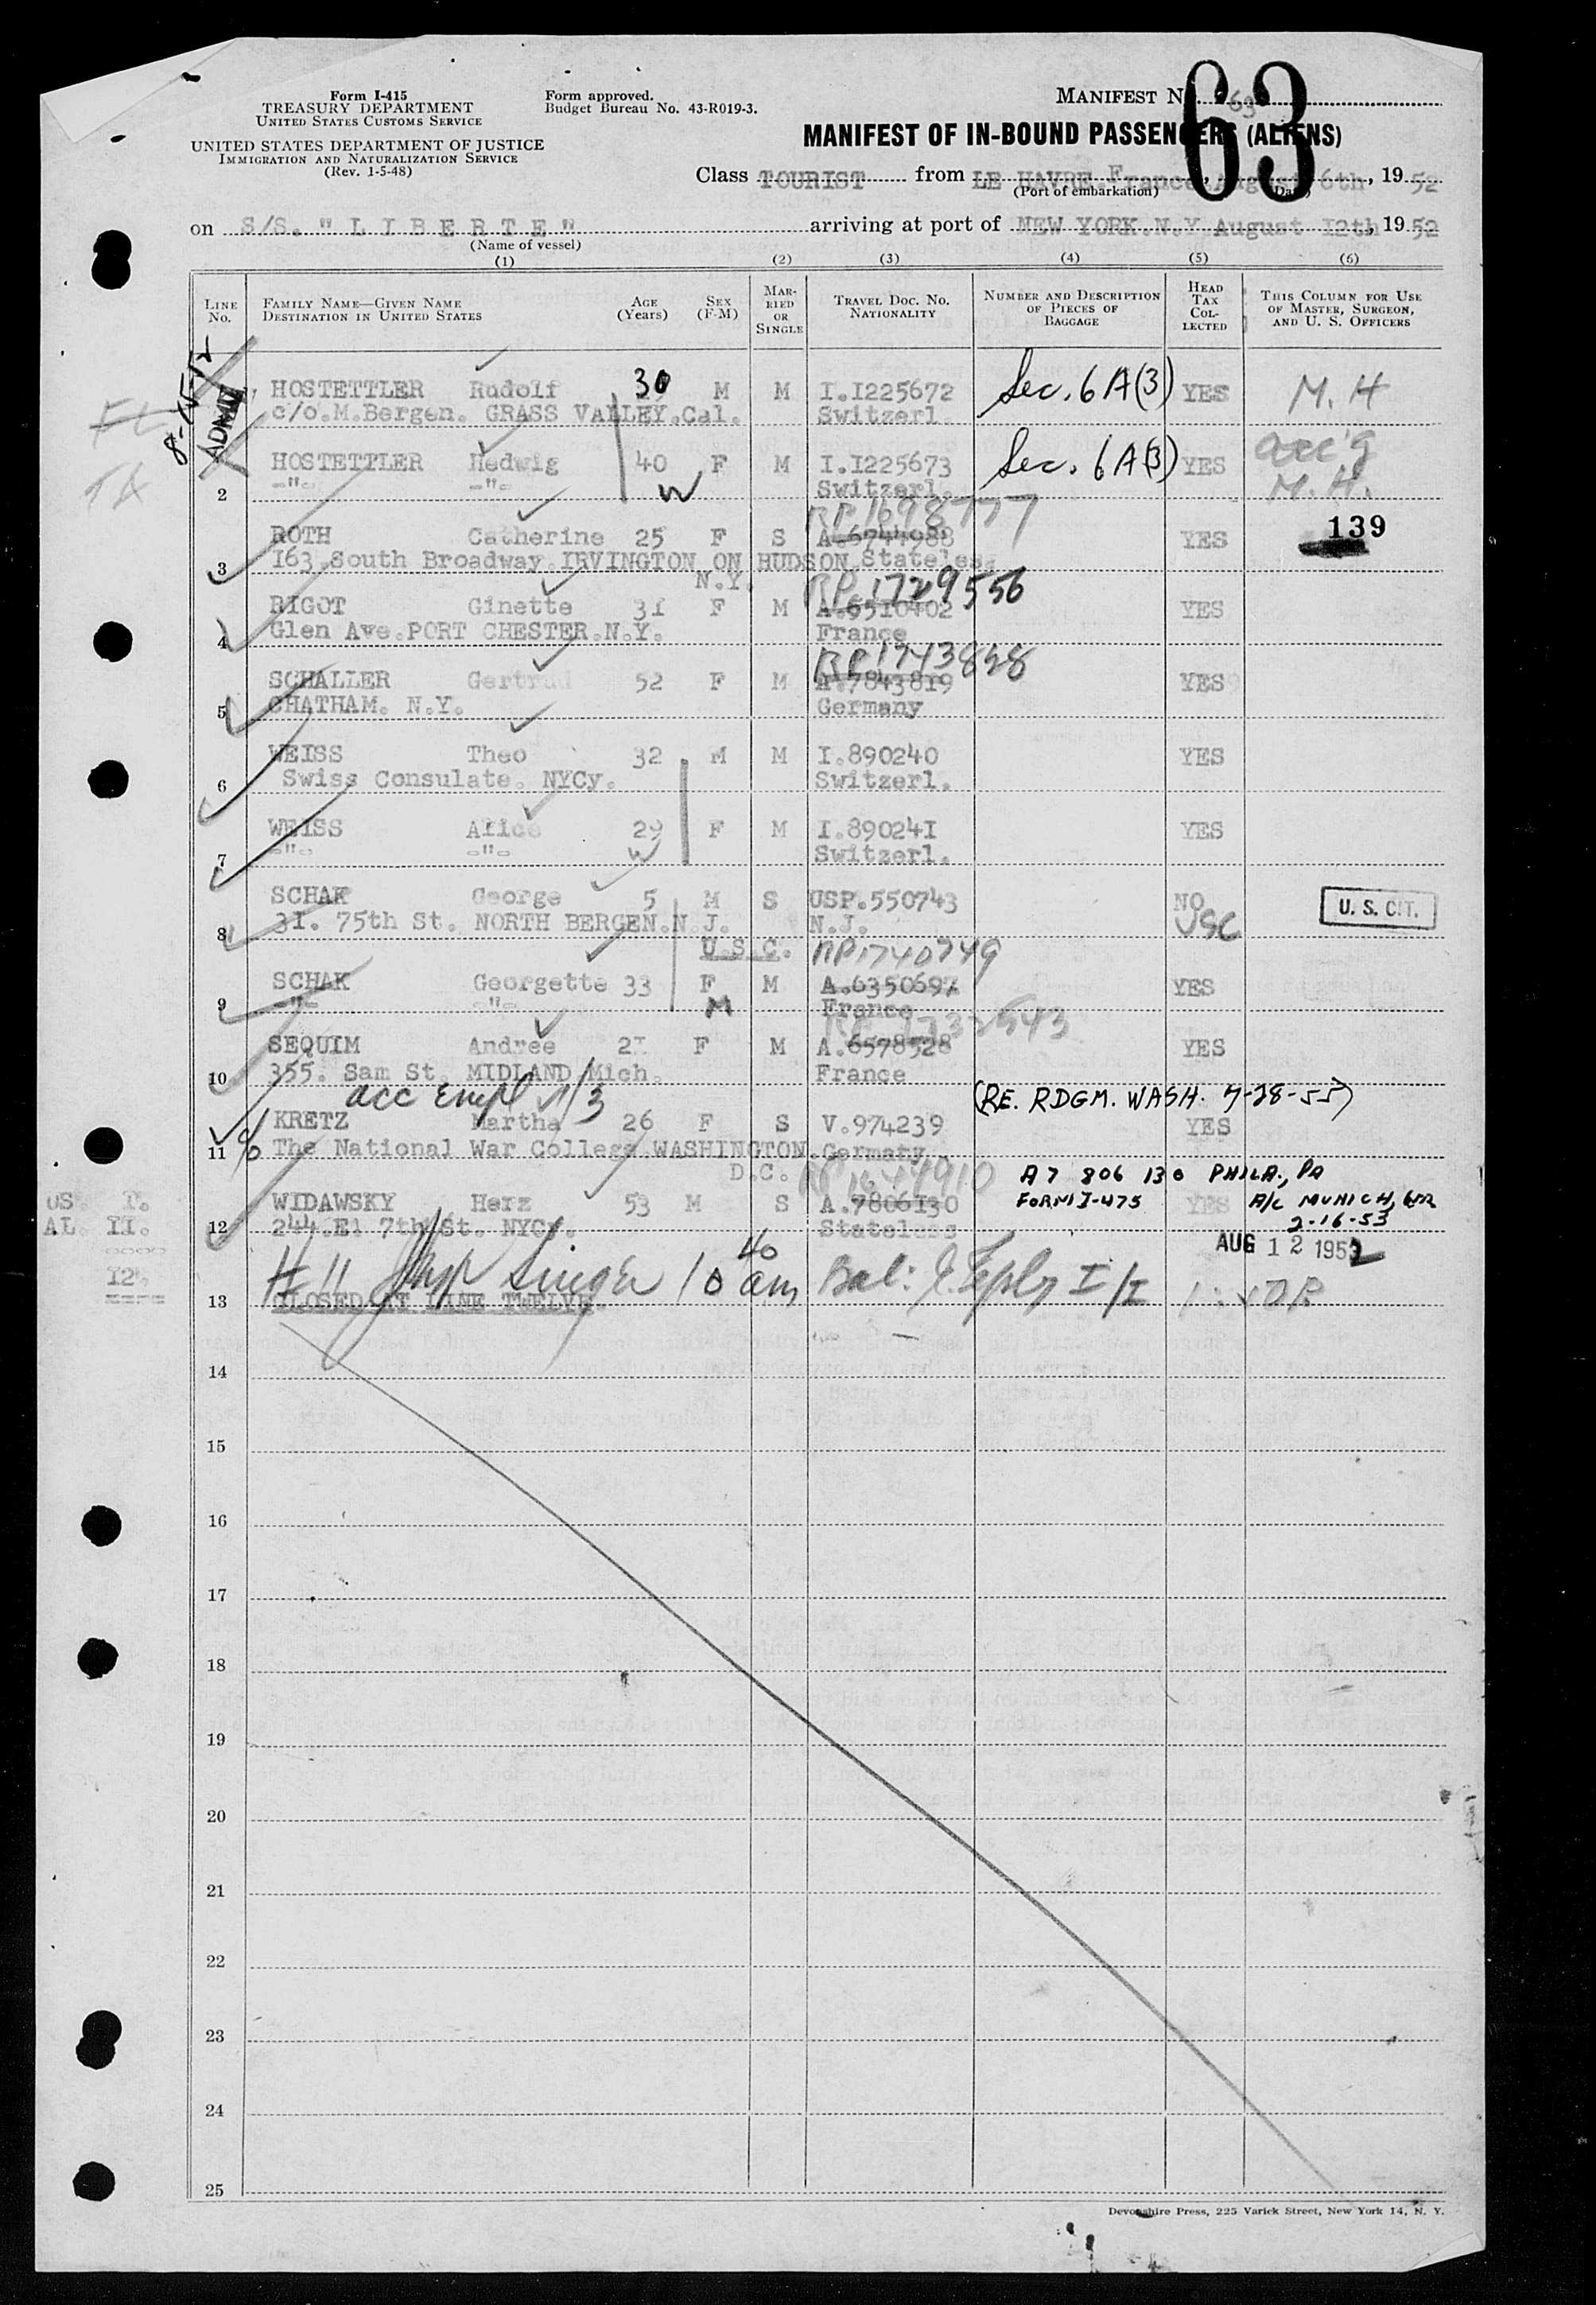 Form I-415
TREASURY DEPARTMENT
UNITED STATES CUSTOMS SERVICE
UNITED STATES DEPARTMENT OF JUSTICE
IMMIGRATION AND NATURALIZATION SERVICE
(Rev. 1-5-48)
Form approved.
Budget Bureau No. 43-R019-3.
MANIFEST No. 63
63
MANIFEST OF IN-BOUND PASSENGERS (ALIENS)
Class TOURIST from LE HAVRE.France, August 6th, 1952
(Port of embarkation) (Date)
on S/S. "LIBERTE" arriving at port of NEW YORK.N.Y August 12th, 1952
(Name of vessel)
(1) (2) (3) (4) (5) (6)
LINE No. FAMILY NAME—GIVEN NAME DESTINATION IN UNITED STATES AGE (Years) SEX (F-M) MARRIED OR SINGLE TRAVEL DOC. No. NATIONALITY NUMBER AND DESCRIPTION OF PIECES OF BAGGAGE HEAD TAX COLLECTED THIS COLUMN FOR USE OF MASTER, SURGEON, AND U. S. OFFICERS
ADMIT
HOSTETTLER Rudolf 30 M M I.I225672 Sec. 6A(3) YES M.H
c/o.M.Bergen. GRASS VALLEY.Cal. Switzerl.
HOSTETTLER Hedwig 40 F M I.I225673 Sec. 6A(3) YES acc'g
2 -"- -"- W Switzerl. M.H.
RP 1698777
ROTH Catherine 25 F S A.6744988 YES 139
3 163.South Broadway.IRVINGTON ON HUDSON. Stateless
N.Y. RP.1729556
RIGOT Ginette 31 F M A.6510402 YES
4 Glen Ave.PORT CHESTER.N.Y. France
RP1743858
SCHALLER Gertrud 52 F M A.7843819 YES
5 CHATHAM. N.Y. Germany
WEISS Theo 32 M M I.890240 YES
6 Swiss Consulate. NYCy. Switzerl.
WEISS Alice 29 F M I.890241 YES
7 -"- -"- W Switzerl.
SCHAK George 5 M S USP.550743 NO U. S. CIT.
8 31. 75th St. NORTH BERGEN.N.J. N.J. USC
U.S.C. RP1740749
SCHAK Georgette 33 F M A.6350697 YES
9 -"- -"- M France
SEQUIM Andrée F M A.6578528 YES
10 355. Sam St. MIDLAND Mich. France
acc Empl 1/3 (RE. RDGM. WASH. 7-28-55)
KRETZ Martha 26 F S V.974239 YES
11 c/o The National War College.WASHINGTON. Germany
D.C. A7 806 130 PHILA., PA
WIDAWSKY Herz 53 M S A.7806130 FORM I-475 YES A/C MUNICH, GER
12 244.E1 7th St. NYCy. Stateless 2-16-53
US. I.
AL. II.
12.
AUG 12 1952
Singer 10 40 am Bal:
13 CLOSED AT LINE TWELVE.
14
15
16
17
18
19
20
21
22
23
24
25
Devonshire Press, 225 Varick Street, New York 14, N. Y.